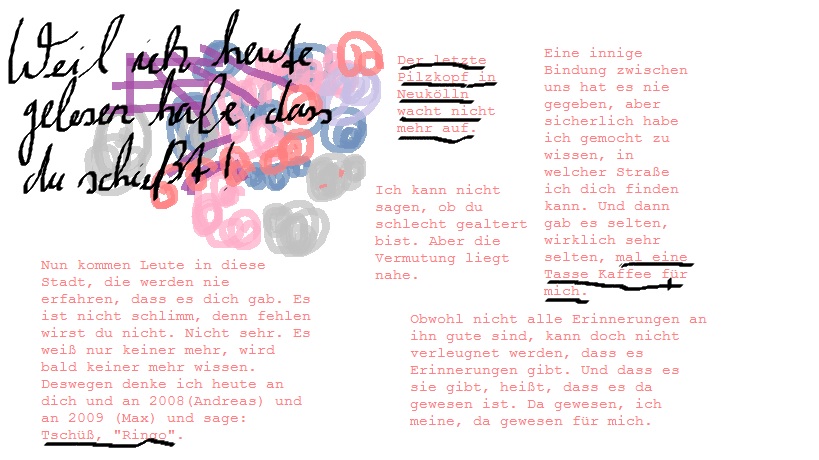 Weil ich heute
gelesen habe, dass
du schießt!
Der letzte
Pilzkopf in
Neukölln
wacht nicht
mehr auf.
Ich kann nicht
sagen, ob du
schlecht gealtert
bist. Aber die
Vermutung liegt
nahe.
Eine innige
Bindung zwischen
uns hat es nie
gegeben, aber
sicherlich habe
ich gemocht zu
wissen, in
welcher Straße
ich dich finden
kann. Und dann
gab es selten,
wirklich sehr
selten, mal eine
Tasse Kaffee für
mich.
Nun kommen Leute in diese
Stadt, die werden nie
erfahren, dass es dich gab. Es
ist nicht schlimm, denn fehlen
wirst du nicht. Nicht sehr. Es
weiß nur keiner mehr, wird
bald keiner mehr wissen.
Deswegen denke ich heute an
dich und an 2008(Andreas) und
an 2009 (Max) und sage:
Tschüß, "Ringo".
Obwohl nicht alle Erinnerungen an
ihn gute sind, kann doch nicht
verleugnet werden, dass es
Erinnerungen gibt. Und dass es
sie gibt, heißt, dass es da
gewesen ist. Da gewesen, ich
meine, da gewesen für mich.